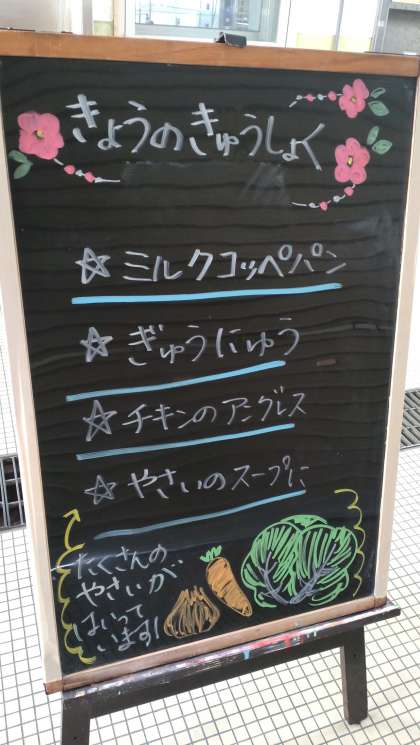 きょうのきゅうしょく
☆ミルクコッペパン
☆ぎゅうにゅう
☆チキンのアングレス
☆やさいのスープに
たくさんの
やさいが
はいって
います!